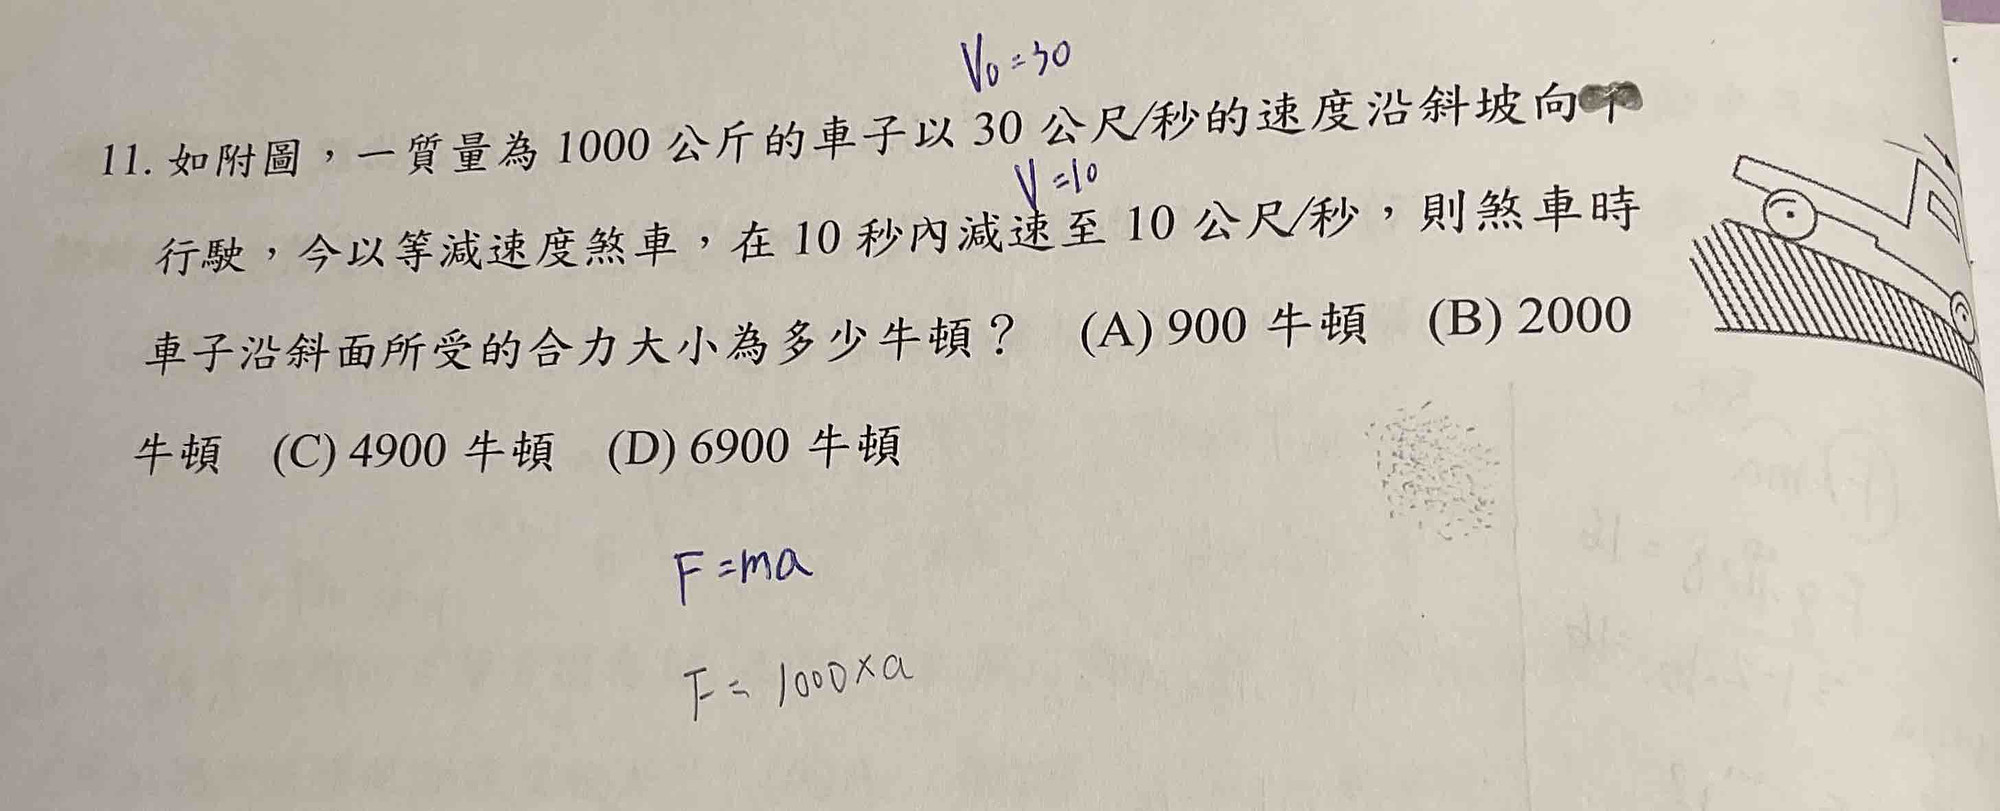 V₀=30
11. 如附圖，一質量為 1000 公斤的車子以 30 公尺/秒的速度沿斜坡向下
V=10
行駛，今以等減速度煞車，在 10 秒內減速至 10 公尺/秒，則煞車時
車子沿斜面所受的合力大小為多少牛頓？ (A) 900 牛頓 (B) 2000
牛頓 (C) 4900 牛頓 (D) 6900 牛頓
F=ma
F=1000×a